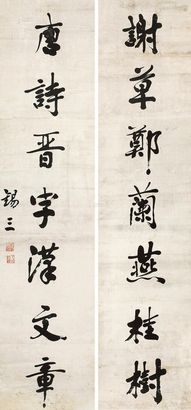 謝草鄭蘭燕桂樹
唐詩晋字漢文章
錫三